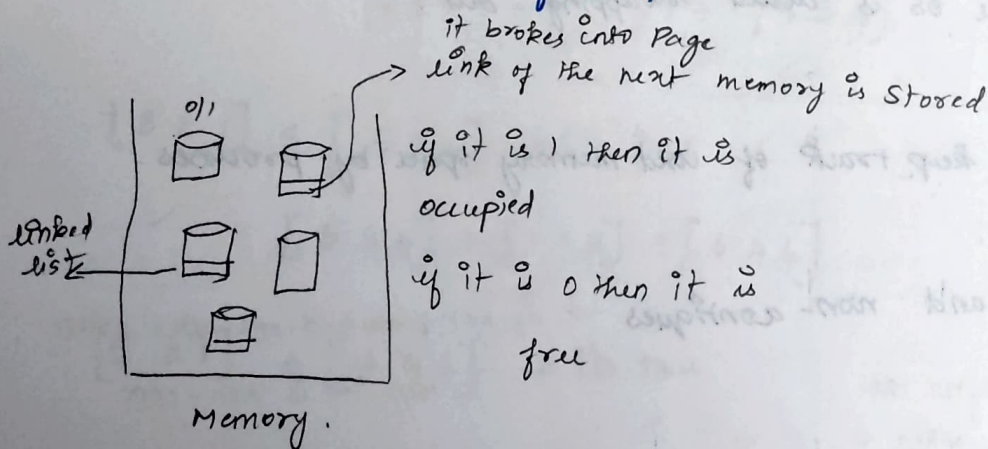 it brokes into Page
link of the next memory is stored
0/1
if it is 1 then it is
occupied
linked
list
if it is 0 then it is
free
Memory.